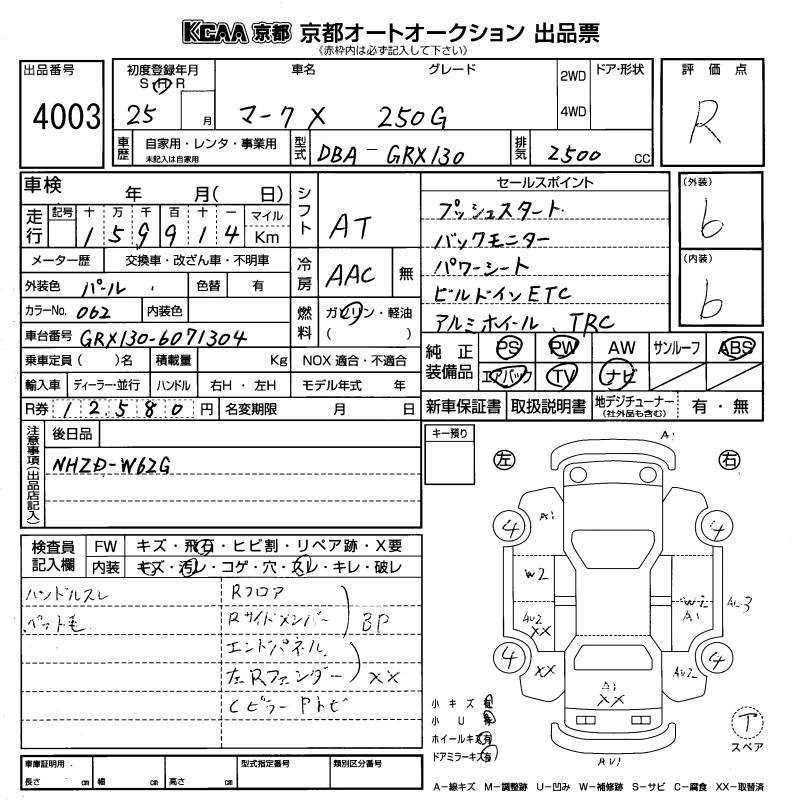 KCAA 京都 京都オートオークション 出品票
《赤枠内は必ず記入して下さい》
出品番号
4003
初度登録年月
S H R
25 月
車名 グレード
マークX 250G
2WD
4WD
ドア・形状
評価点
R
車歴 自家用・レンタ・事業用
未記入は自家用
型式 DBA-GRX130
排気 2500 CC
車検 年 月( 日)
走行 記号 十 万 千 百 十 一 マイル
1 5 9 9 1 4 Km
メーター歴 交換車・改ざん車・不明車
外装色 パール 色替 有
カラーNo. 062 内装色
車台番号 GRX130-6071304
乗車定員( )名 積載量 Kg
輸入車 ディーラー・並行 ハンドル 右H・左H
R券 1 2,5 8 0 円 名変期限 月 日
シフト AT
冷房 AAC 無
燃料 ガソリン・軽油
( )
NOX 適合・不適合
モデル年式 年
セールスポイント
プッシュスタート
バックモニター
パワーシート
ビルドインETC
アルミホイール、TRC
(外装)
b
(内装)
b
純正装備品 PS PW AW サンルーフ ABS
エアバック TV ナビ
新車保証書 取扱説明書 地デジチューナー(社外品も含む) 有・無
注意事項(出品店記入)
後日品
NHZD-W62G
キー預り
検査員記入欄
FW キズ・飛石・ヒビ割・リペア跡・X要
内装 キズ・汚レ・コゲ・穴・スレ・キレ・破レ
ハンドルスレ
ペット毛
Rフロア
Rサイドメンバー
BP
エンドパネル
左Rフェンダー
XX
CピラーPトビ
左 右
A1
4 4
A1
W2
W2
A1
AU2
XX
AU3
4 4
XX
AU2
A1
XX
AU1
小キズ 有
小U 有
ホイールキズ 有
ドアミラーキズ 有
T
スペア
車庫証明用
長さ cm 幅 cm 高さ cm
型式指定番号
類別区分番号
A-線キズ M-調整跡 U-凹み W-補修跡 S-サビ C-腐食 XX-取替済